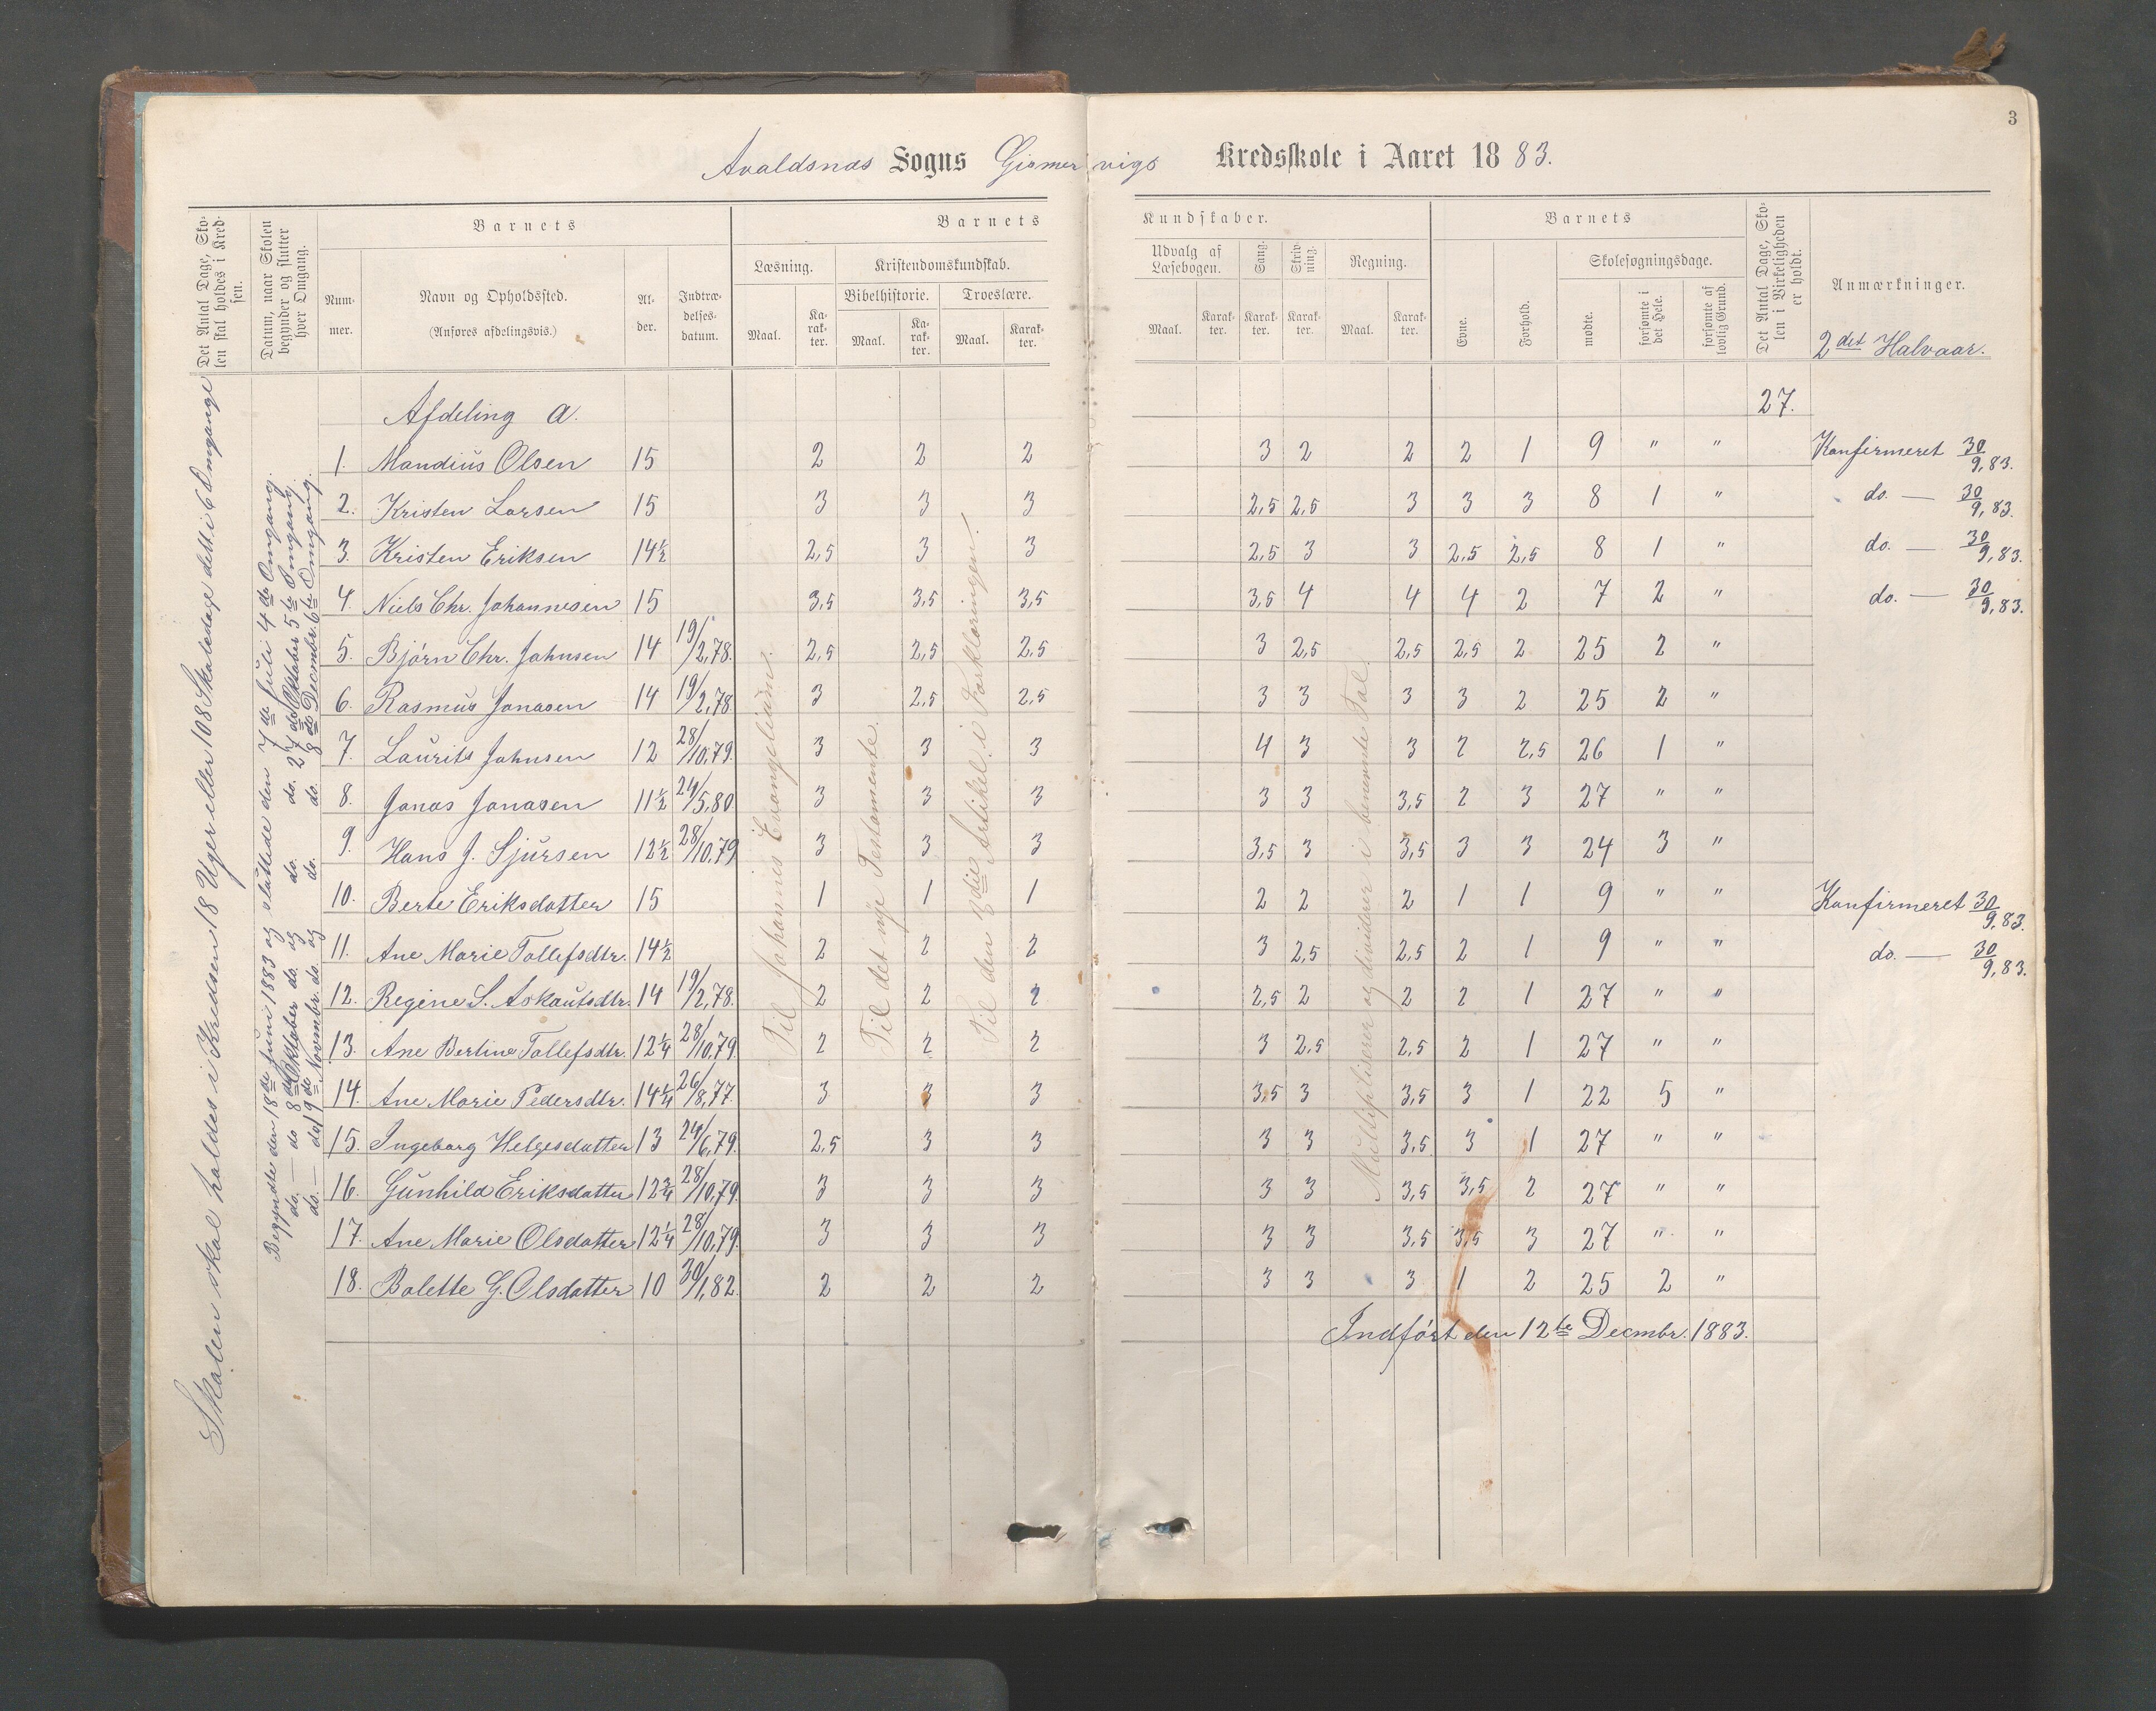 3
Avaldsnæs Sogns Gismervigs Kredsskole i Aaret 1883.
Det Antal Dage, Skolen skal holdes i Kredsen.
Datum, naar Skolen begynder og slutter hver Omgang.
Barnets
Nummer.
Navn og Opholdssted.
(Anføres afdelingsvis.)
Alder.
Indtrædelsesdatum.
Barnets Kundskaber.
Læsning.
Maal.
Karakter.
Kristendomskundskab.
Bibelhistorie.
Maal.
Karakter.
Troeslære.
Maal.
Karakter.
Udvalg af Læsebogen.
Maal.
Karakter.
Sang.
Karakter.
Skrivning.
Karakter.
Regning.
Maal.
Karakter.
Barnets
Evne.
Forhold.
Skolesøgningsdage.
mødte.
forsømte i det Hele.
forsømte af lovlig Grund.
Det Antal Dage, Skolen i Virkeligheden er holdt.
Anmærkninger.
2det Halvaar.
Skolen skal holdes i Kredsen 18 Uger eller 108 Skoledage delt i 6 Omgange
Begyndte den 18de Juni 1883 og sluttede den 7de Juli 4de Omgang.
do. — do 8de Oktober do. og do. 27de Oktober 5te Omgang.
do. — do 19de Novmbr. do. og do. do. 8de Decmbr. 6te Omgang.
Afdeling a. 27.
1. Mandius Olsen 15 2 2 2 3 2 2 2 1 9 " " Konfirmeret 30/9,83.
2. Kristen Larsen 15 3 3 3 2,5 2,5 3 3 3 8 1 " do. — 30/9,83.
3. Kristen Eriksen 14½ 2,5 3 3 2,5 3 3 2,5 2,5 8 1 " do. — 30/9,83.
4. Niels Chr. Johannesen 15 3,5 3,5 3,5 3,5 4 4 4 2 7 2 " do. — 30/9,83.
5. Bjørn Chr. Johnsen 14 19/2,78. 2,5 2,5 2,5 3 2,5 2,5 2,5 2 25 2 "
6. Rasmus Jonasen 14 19/2,78 3 2,5 2,5 3 3 3 3 2 25 2 "
7. Laurits Johnsen 12 28/10,79. 3 3 3 4 3 3 2 2,5 26 1 "
8. Jonas Jonasen 11½ 24/5,80 3 3 3 3 3 3,5 2 3 27 " "
9. Hans J. Sjursen 12½ 28/10,79 3 3 3 3,5 3 3,5 3 3 24 3 "
10. Berte Eriksdatter 15 1 1 1 2 2 2 1 1 9 " " Konfirmeret 30/9,83.
11. Ane Marie Tollefsdtr. 14½ 2 2 2 3 2,5 2,5 2 1 9 " " do. — 30/9,83.
12. Regine S. Askautsdtr. 14 19/2,78. 2 2 2 2,5 2 2 2 1 27 " "
13. Ane Bertine Tollefsdtr. 12¼ 28/10,79. 2 2 2 3 2,5 2,5 2 1 27 " "
14. Ane Marie Pedersdtr. 14¼ 26/8,77. 3 3 3 3,5 3 3,5 3 1 22 5 "
15. Ingeborg Helgesdatter 13 24/6,79. 2,5 3 3 3 3 3,5 3 1 27 " "
16. Gunhild Eriksdatter 12¾ 28/10,79. 3 3 3 3 3 3,5 3,5 2 27 " "
17. Ane Marie Olsdatter 12¼ 28/10,79. 3 3 3 3 3 3,5 3,5 3 27 " "
18. Bolette G. Olsdatter 10 30/1,82. 2 2 2 3 3 3 1 2 25 2 "
Til Johannes Evangelium.
Til det nye Testamente.
Til den 3die Artikel i Forklaringen.
Multipliserer og dividerer i benevnte Tal.
Indført den 12te Decmbr. 1883.